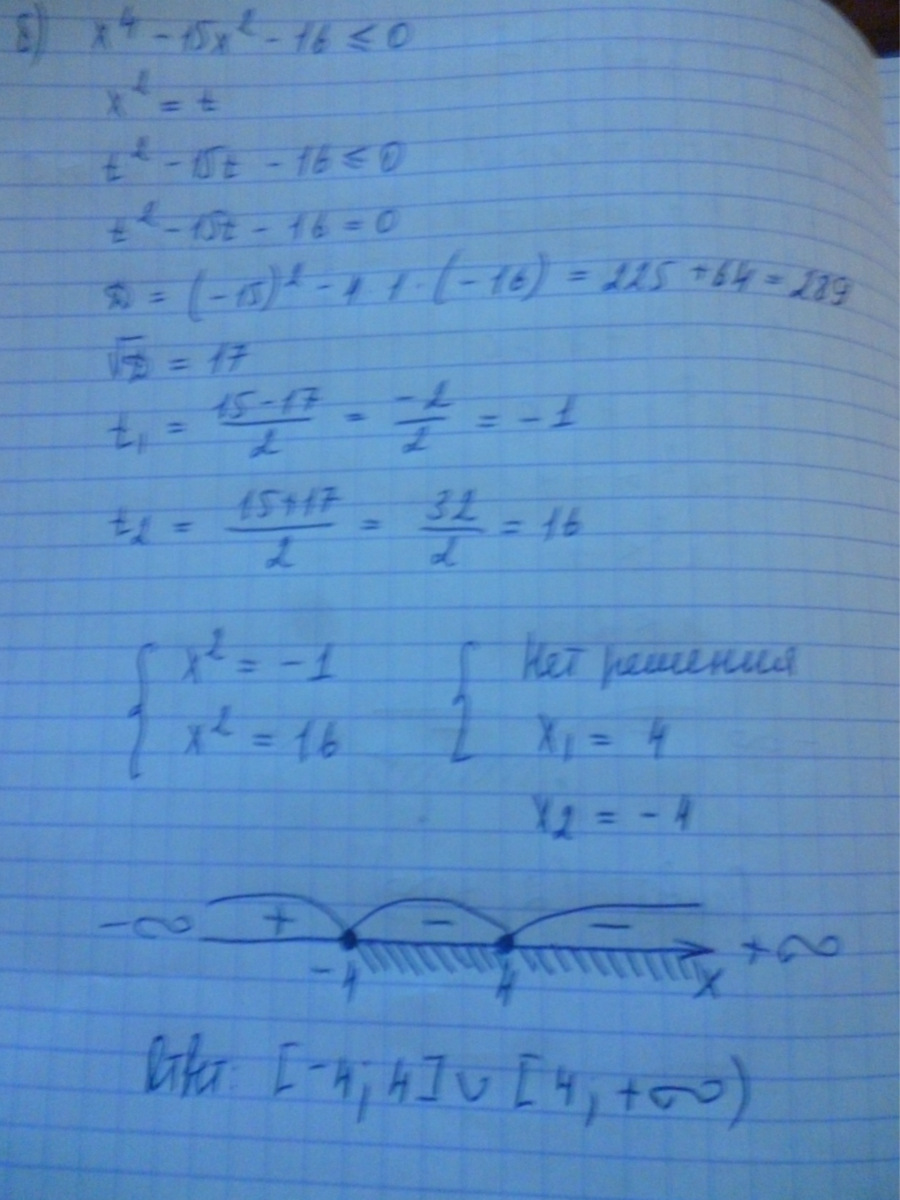 б) x⁴ - 15x² - 16 ≤ 0
x² = t
t² - 15t - 16 ≤ 0
t² - 15t - 16 = 0
D = (-15)² - 4 · 1 · (-16) = 225 + 64 = 289
√D = 17
t₁ = (15-17)/2 = -2/2 = -1
t₂ = (15+17)/2 = 32/2 = 16
{ x² = -1 { Нет решения
x² = 16 x₁ = 4
x₂ = -4
-∞ + - - +∞
-4 4 x
Ответ: [-4; 4] ∪ [4; +∞)